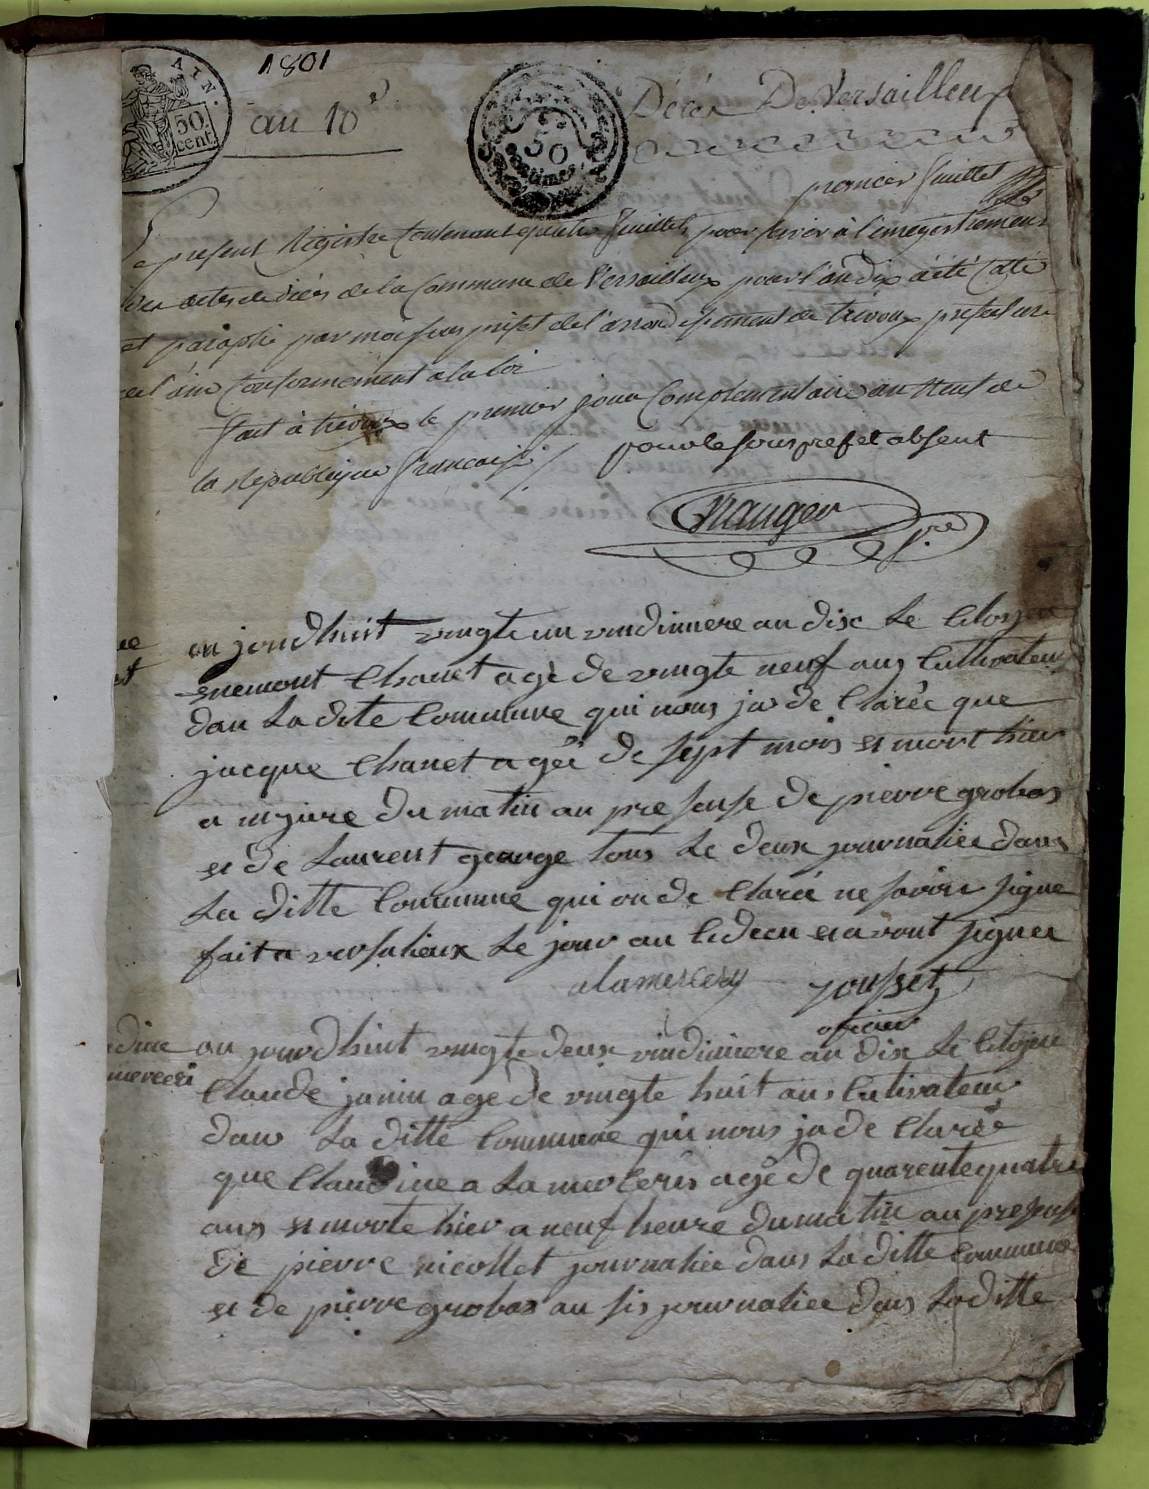 1801
AIN.
50
cent.
an 10e
50
centimes
Décès De Versailleux
premier feuillet
Le present Registre Contenant quatre feuillets pour servir à l'enregistrement
des actes de décès de la Commune de Versailleux pour l'an dix a été Coté
et paraphé par moi sous préfet de l'arrondissement de trevoux prefecture
de l'ain Conformement a la loi
fait à trevoux le premier jour Complementaire an neuf de
la Republique française /
pour le sous prefet absent
an jourdhuit vingte un vindimiere an disc Le Citoyen
enemont Chanet agé de vingte neuf ans Cultivateur
dan La dite Commune qui nous ja de Clarée que
jacque Chanet agée de sept mois et mort hier
a du matin an presense de pierre grobas
et de Laurent george tous Le deux journaliée dans
La ditte Commune qui on de Claréé ne savoire signe
fait a versalieux Le jour an et avont signer
alamercery
jousset
oficier
dine
merceri
au jourdhuit vingte deux vindimiere an dix Le Citojen
Claude janin age de vingte huit ans Cultivateur
dans La ditte Commune qui nous ja de Clarée
que Claudine a La merceris agé de quarente quatre
ans et morte hier a neuf heure du matin au presense
de pierre nicollet journaliée dans La ditte Commune
et de pierre grobas au sis journaliée dans La ditte